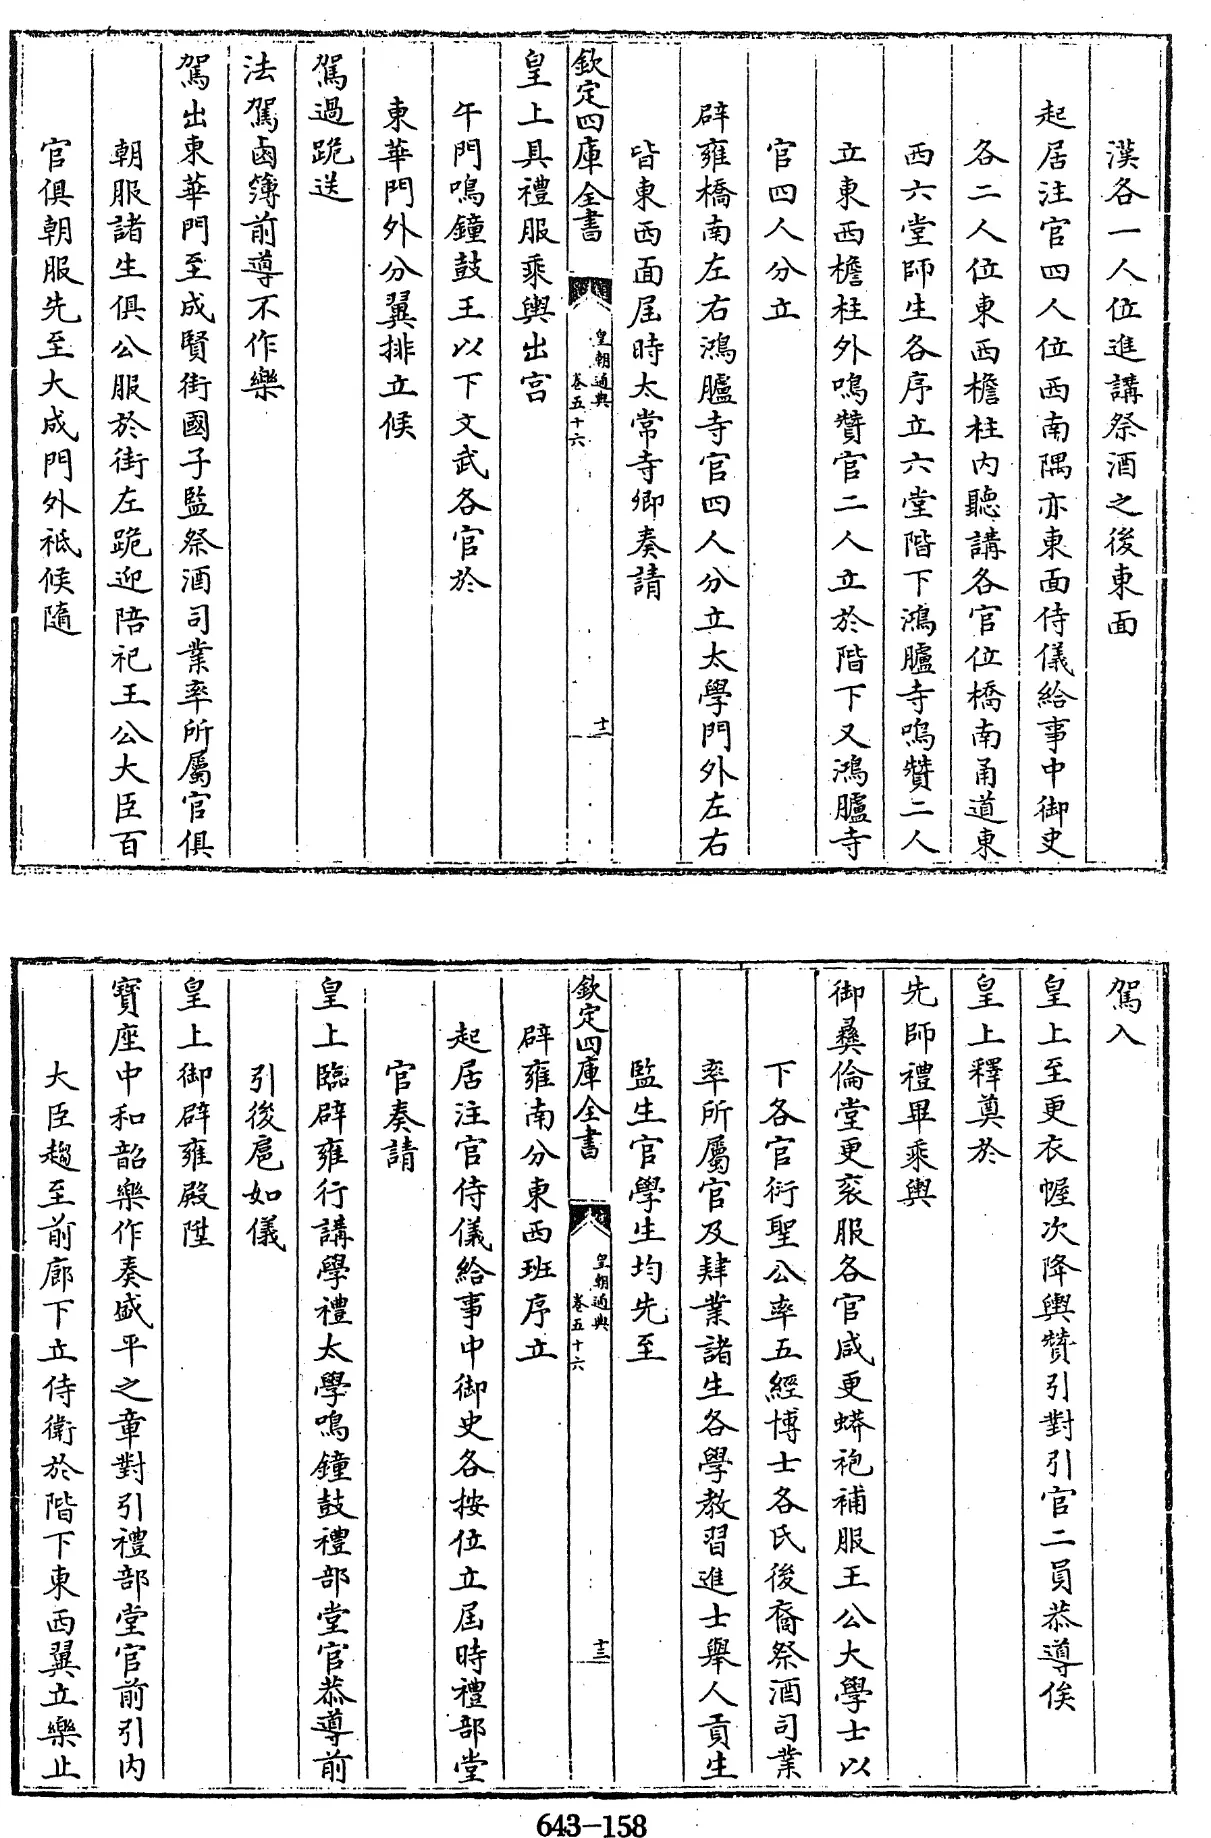 漢各一人位進講祭酒之後東面
起居注官四人位西南隅亦東面侍儀給事中御史
各二人位東西檐柱内聽講各官位橋南甬道東
西六堂師生各序立六堂階下鴻臚寺鳴贊二人
立東西檐柱外鳴贊官二人立於階下又鴻臚寺
官四人分立
辟雍橋南左右鴻臚寺官四人分立太學門外左右
皆東西面屆時太常寺卿奏請
欽定四庫全書
皇朝通典
卷五十六
十二
皇上具禮服乘輿出宫
午門鳴鐘鼓王以下文武各官於
東華門外分翼排立候
駕過跪送
法駕鹵簿前導不作樂
駕出東華門至成賢街國子監祭酒司業率所屬官俱
朝服諸生俱公服於街左跪迎陪祀王公大臣百
官俱朝服先至大成門外祗候隨
駕入
皇上至更衣幄次降輿贊引對引官二員恭導俟
皇上釋奠於
先師禮畢乘輿
御彝倫堂更衮服各官咸更蟒袍補服王公大學士以
下各官衍聖公率五經博士各氏後裔祭酒司業
率所屬官及肄業諸生各學教習進士舉人貢生
監生官學生均先至
欽定四庫全書
皇朝通典
卷五十六
十三
辟雍南分東西班序立
起居注官侍儀給事中御史各按位立屆時禮部堂
官奏請
皇上臨辟雍行講學禮太學鳴鐘鼓禮部堂官恭導前
引後扈如儀
皇上御辟雍殿陞
寶座中和韶樂作奏盛平之章對引禮部堂官前引内
大臣趨至前廊下立侍衛於階下東西翼立樂止
643-158